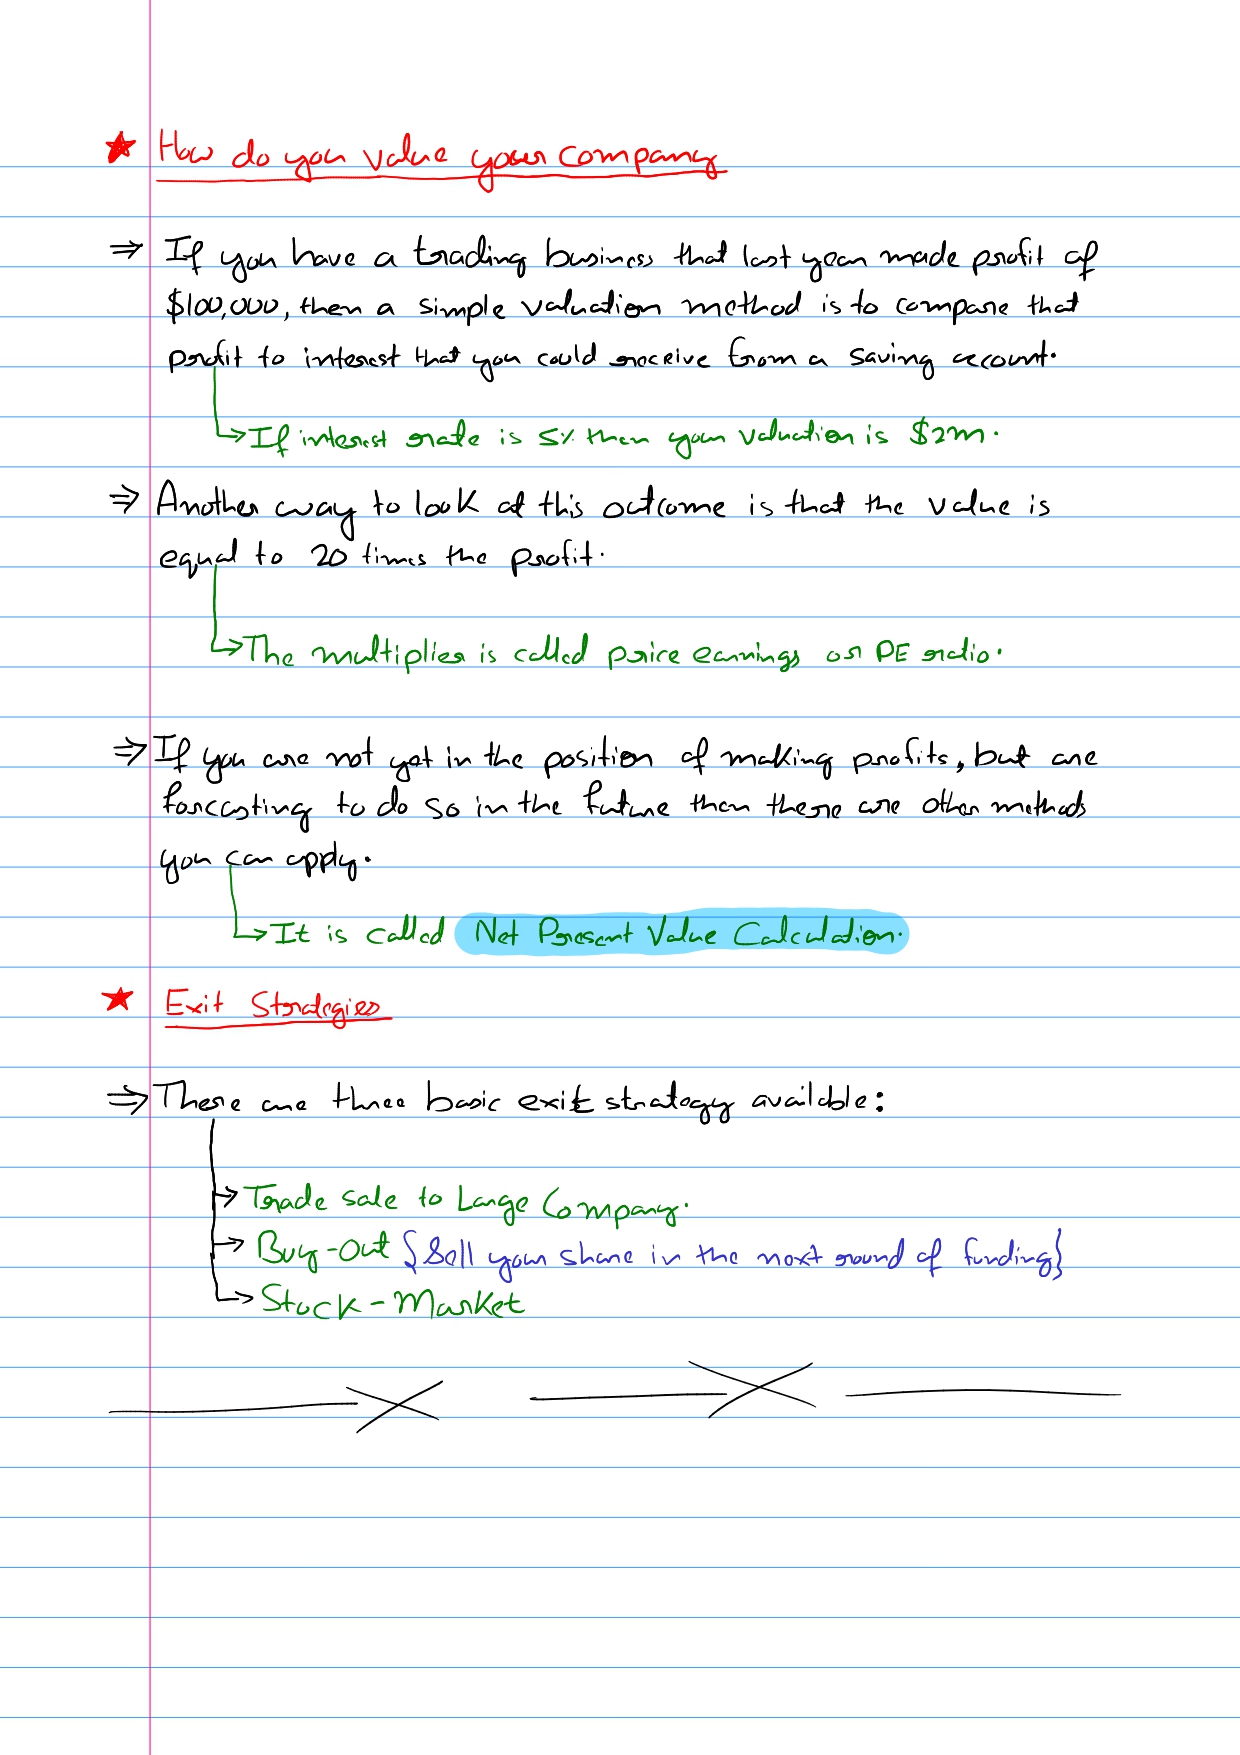 ★ How do you value your company
⇒ If you have a trading business that last year made profit of
$100,000, then a simple valuation method is to compare that
profit to interest that you could receive from a saving account.
↳ If interest rate is 5% then your valuation is $2m.
⇒ Another way to look at this outcome is that the value is
equal to 20 times the profit.
↳ The multiplier is called price earnings or PE ratio.
⇒ If you are not yet in the position of making profits, but are
forecasting to do so in the future then there are other methods
you can apply.
↳ It is called Net Present Value Calculation.
★ Exit Strategies
⇒ There are three basic exit strategy available:
→ Trade sale to Large Company.
→ Buy-Out {Sell your share in the next round of funding}
↳ Stock-Market